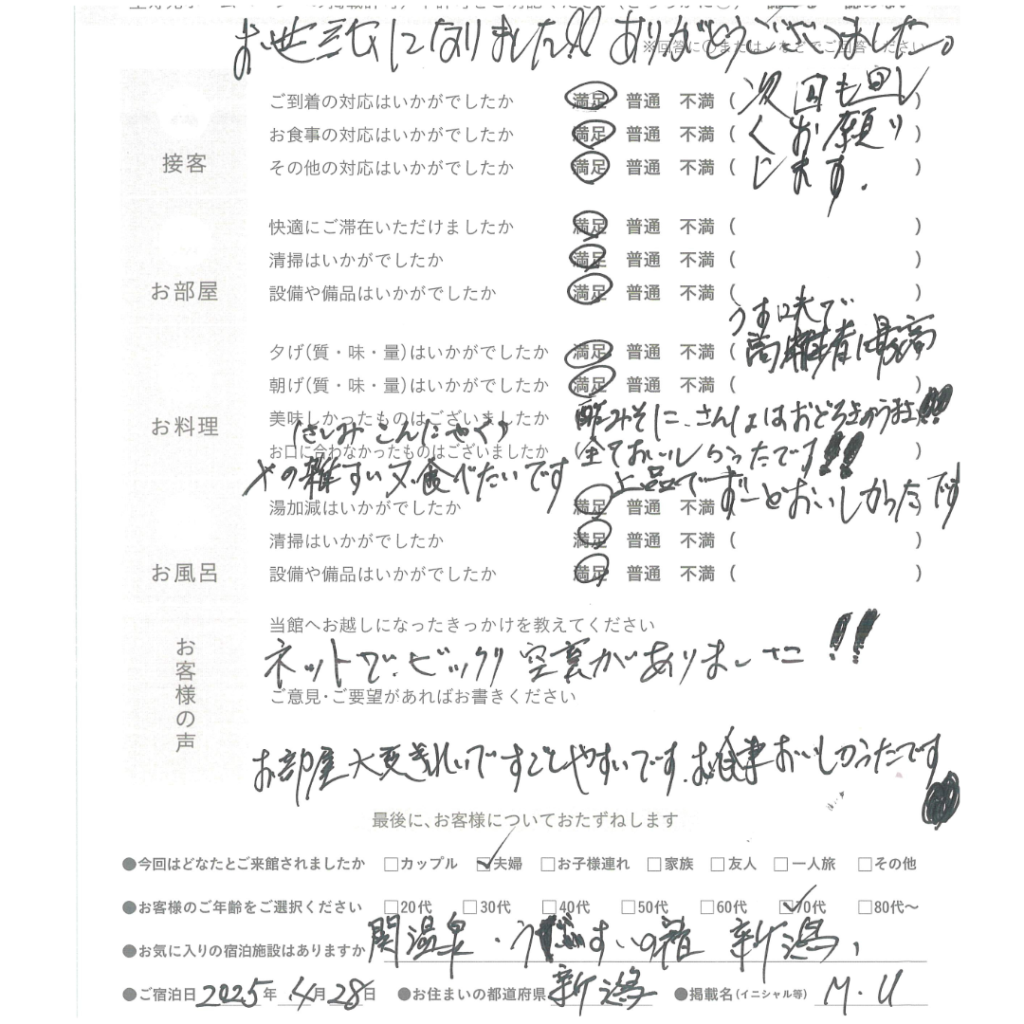 お世話になりました!! ありがとうございました。
※回答に○またはレなどでご回答ください
接客
ご到着の対応はいかがでしたか 満足 普通 不満 ( 次回も宜し )
お食事の対応はいかがでしたか 満足 普通 不満 ( くお願い )
その他の対応はいかがでしたか 満足 普通 不満 ( します. )
お部屋
快適にご滞在いただけましたか 満足 普通 不満 ( )
清掃はいかがでしたか 満足 普通 不満 ( )
設備や備品はいかがでしたか 満足 普通 不満 ( )
うす味で
高齢者は最高
お料理
夕げ(質・味・量)はいかがでしたか 満足 普通 不満 (
朝げ(質・味・量)はいかがでしたか 満足 普通 不満 ( )
美味しかったものはございましたか ( 酢みそに、さんしょはおどろきのうまさ!!
(さしみこんにゃく)
お口に合わなかったものはございましたか ( 全ておいしかったです!! )
又食べたいです 上品でずーとおいしかったです
お風呂
湯加減はいかがでしたか 満足 普通 不満 (
清掃はいかがでしたか 満足 普通 不満 ( )
設備や備品はいかがでしたか 満足 普通 不満 ( )
お客様の声
当館へお越しになったきっかけを教えてください
ネットで、ビックリ空室がありました!!
ご意見・ご要望があればお書きください
お部屋大変きれいですごしやすいです、お食事おいしかったです
最後に、お客様についておたずねします
●今回はどなたとご来館されましたか □カップル ☑夫婦 □お子様連れ □家族 □友人 □一人旅 □その他
●お客様のご年齢をご選択ください □20代 □30代 □40代 □50代 □60代 ☑70代 □80代〜
●お気に入りの宿泊施設はありますか 関温泉・ 新潟,
●ご宿泊日 2025年 4月 28日 ●お住まいの都道府県 新潟 ●掲載名(イニシャル等) M・U